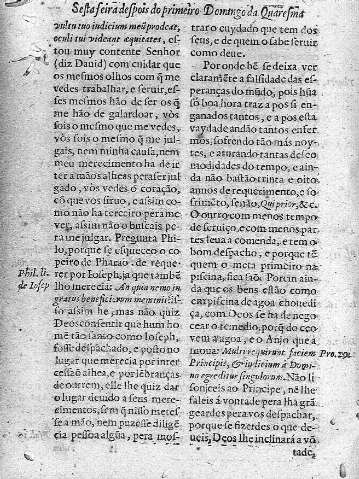 Sesta feira despois do primeiro Domingo da Quaresma
vultu tuo iudicium meũ prodeat,
oculi tui videant equitates, es-
tou muy contente Senhor
(diz Dauid) com cuidar que
os mesmos olhos com q̃ me
vedes trabalhar, e seruir, es-
ses mesmos hão de ser os q̃
me hão de galardoar, vòs
sois o mesmo que me vedes,
vòs sois o mesmo q̃ me jul-
gais, nem minha causa, nem
meu merecimento ha de ir
ter a mãos alheas pera ser jul
gado, vòs vedes ó coração,
cõ que vos siruo, e assim co-
mo não ha terceiro pera me
ver, assim não o buscais pe-
ra me julgar. Pregunta Phi-
lo, porque se esqueceo o co-
peiro de Pharao de reque-
rer por Ioseph, ja que tambẽ
lho merecia? An qua nemo in
gratus beneficiorum meminit?
to assim he, mas não quiz
Deos consentir que hum ho
mẽ tão santo como Ioseph,
fosse despachado, e posto no
lugar que merecia por inter
cessaõ alhea, e por lẽbranças
de outrem, elle lhe quiz dar
o lugar deuido a seus mere-
cimentos, sem q̃ nisso metes-
se a mão, nem puzesse diligẽ
cia pessoa algũa, pera mos-
Phil. li.
de Iosep
trar o cuydado que tem dos
seus, e de quem o sabe seruir
como deue.
Por onde bẽ se deixa ver
claramẽte a falsidade das es-
peranças do mũdo, pois hũa
só boa hora traz a pos si en-
ganados tantos, e a pos esta
vaydade andão tantos enfer
mos, sofrendo tão más noy-
tes, e aturando tantas desco
modidades do tempo, e ain-
da não bastão trinta e oito
annos de requerimento, e so
frimẽto, se não, Qui prior, &c.
O outro com menos tempo
de seruiço, e com menos par
tes leua a comenda, e tem o
bom despacho, e porque tẽ
quem o meta primeiro na
piscina, fica saõ. Por tan ain-
da que os bens estão como
em piscina de agoa enchoei
da, com Deos se ha de nego-
cear o remedio, porq̃ do ceo
vem a agoa, e o Anjo que a
mòua: Multi requirunt faciem
Principis, & iudicium à Domi-
no egreditur singulorum. Não li
songeeis ao Principe, nẽ lhe
faleis á vontade pera lhã grã
geardes pera vos despachar,
porque se fizerdes o que de-
ueis, Deos lhe inclinarà a võ
tade,
Pro. 29.